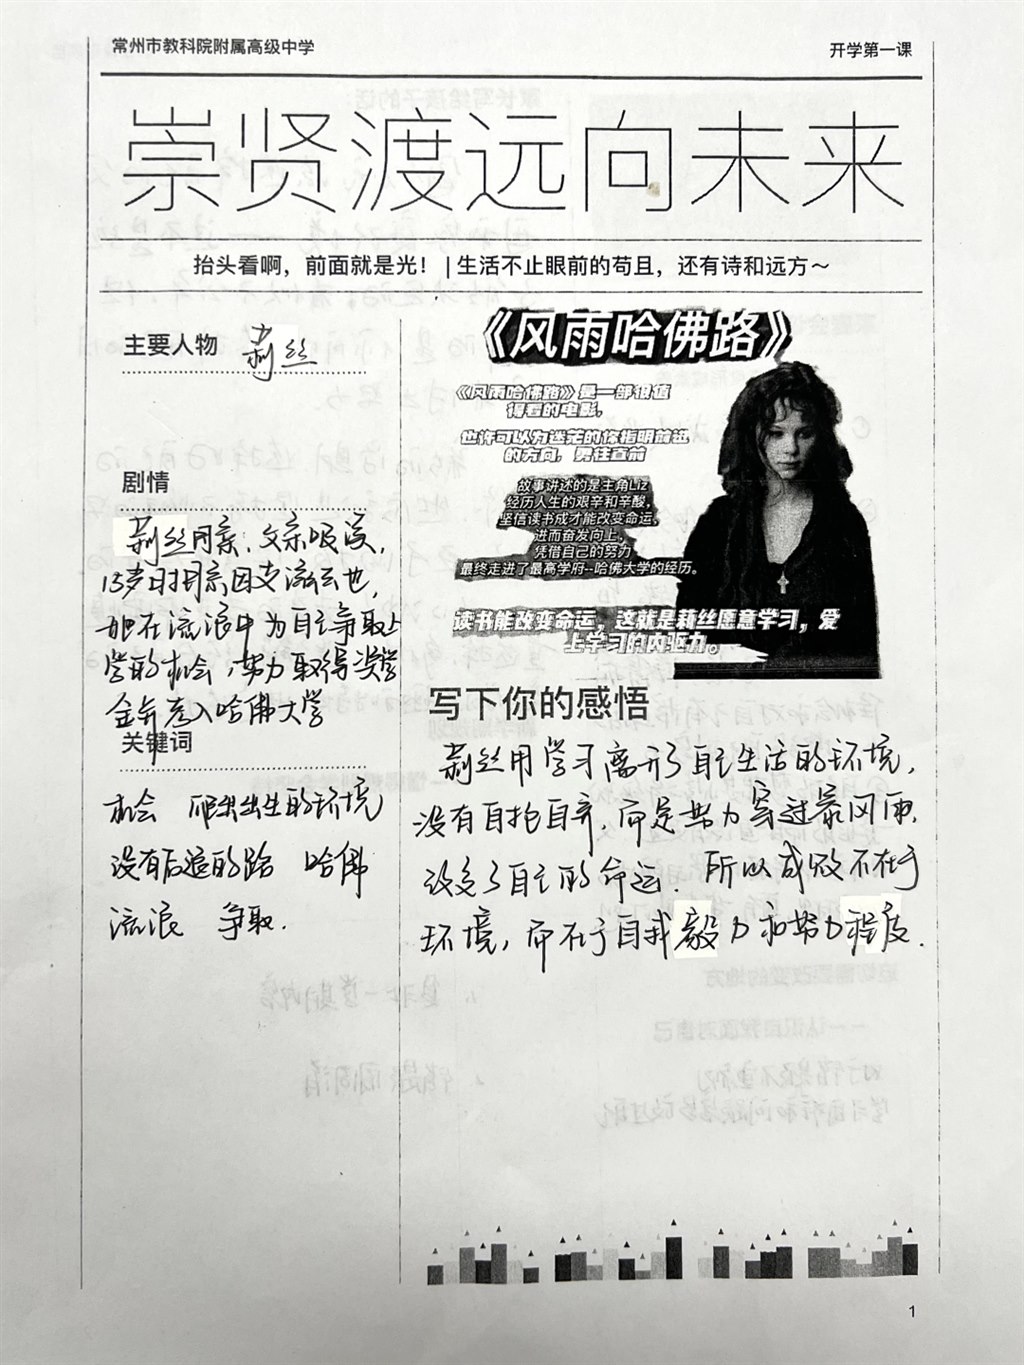 常州市教科院附属高级中学
开学第一课
崇贤渡远向未来
抬头看啊，前面就是光！ | 生活不止眼前的苟且，还有诗和远方～
主要人物 莉丝
剧情
莉丝母亲、父亲吸毒，
15岁时母亲因艾滋去世，
她在流浪中为自己争取上
学的机会，努力取得奖学
金并考入哈佛大学
关键词
机会 爬出出生的环境
没有后退的路 哈佛
流浪 争取.
《风雨哈佛路》
《风雨哈佛路》是一部很值
得看的电影，
也许可以为迷茫的你指明前进
的方向，勇往直前
故事讲述的是主角Liz
经历人生的艰辛和辛酸，
坚信读书成才能改变命运，
进而奋发向上，
凭借自己的努力
最终走进了最高学府--哈佛大学的经历。
读书能改变命运，这就是莉丝愿意学习，爱
上学习的内驱力。
写下你的感悟
莉丝用学习离开了自己生活的环境，
没有自抱自弃，而是努力穿过暴风雨，
改变了自己的命运. 所以成败不在于
环境，而在于自我毅力和努力程度.
1